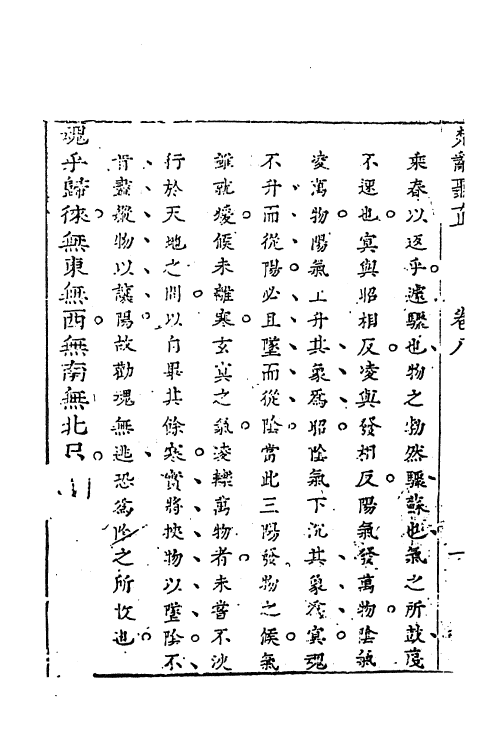 卷八
乘春以返乎遽驟也物之勃然驟蘇也氣之所鼓廹
不遲也寞與昭相反凌與發相反陽氣發萬物陰氣
凌萬物陽氣上升其象爲昭陰氣下沉其象爲寞魂
不升而從陽必且墜而從陰當此三陽發物之候氣
雖就煖候未離寒玄寞之氣凌轢萬物者未嘗不浹
行於天地之間以自畢其餘寒實將挾物以墜陰不
肯盡縱物以讓陽故勸魂無逃恐為陰之所攻也
魂乎歸徠無東無西無南無北只